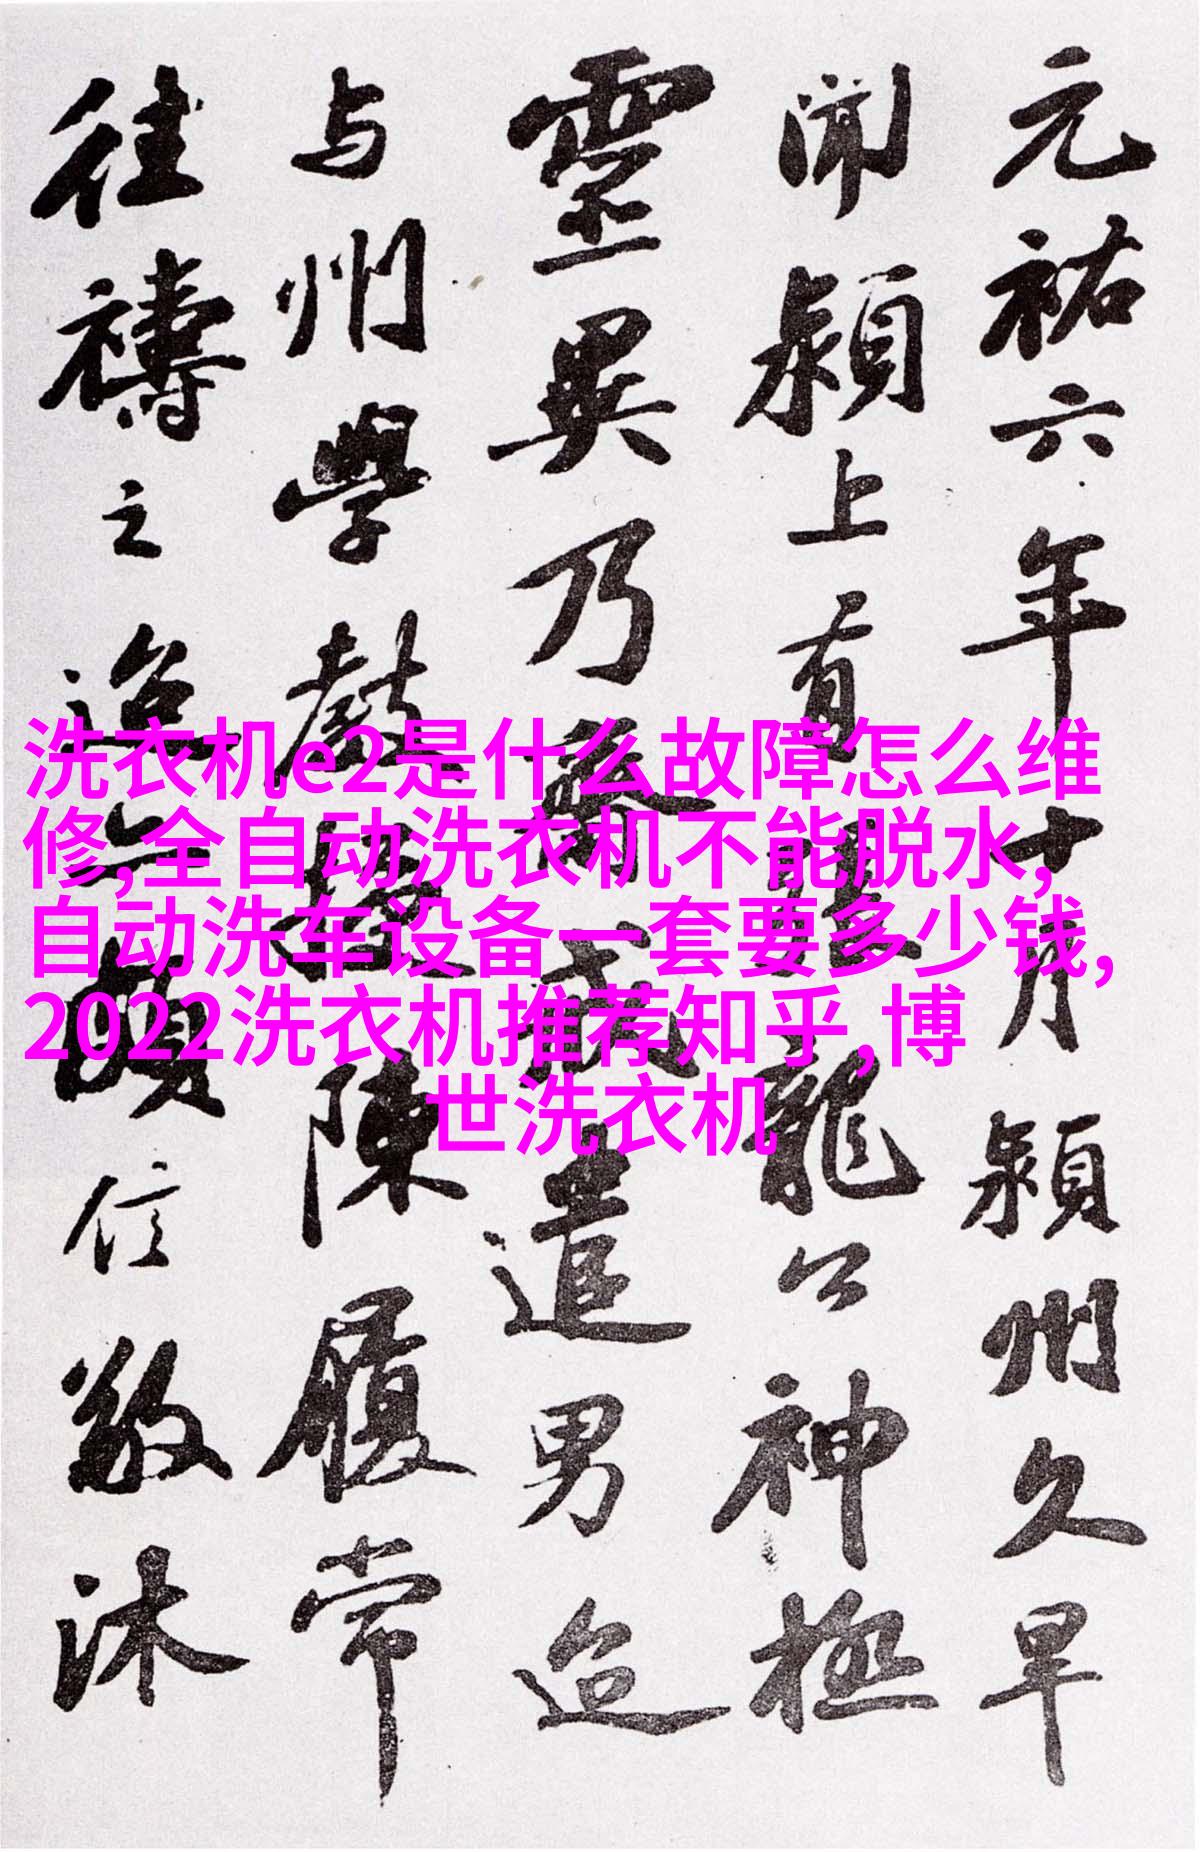 元祐六年十月潁州久旱
聞潁上有張龍公神極
靈異乃齋戒遣男迨
与州學教授陳履常
往禱之迨亦頗信敬沐
洗衣机e2是什么故障怎么维
修,全自动洗衣机不能脱水,
自动洗车设备一套要多少钱,
2022洗衣机推荐知乎,博
世洗衣机